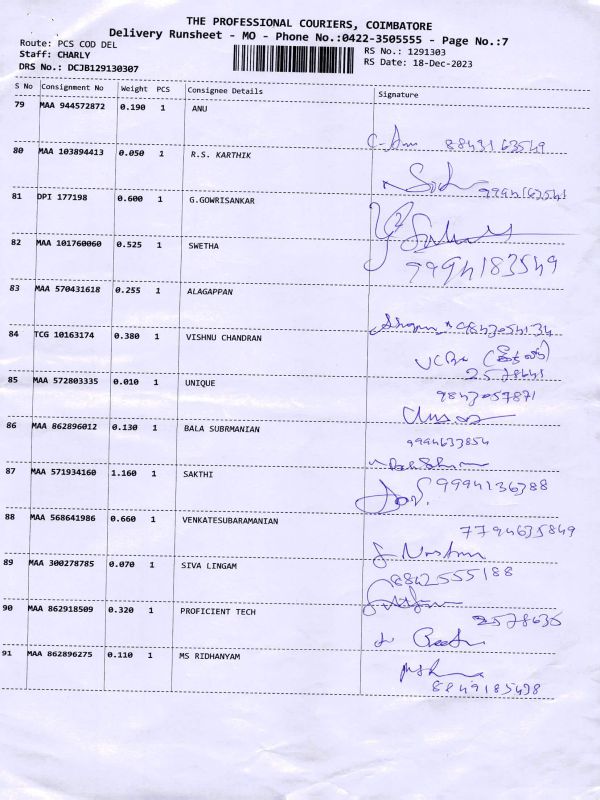 THE PROFESSIONAL COURIERS, COIMBATORE
Delivery Runsheet - MO - Phone No.:0422-3505555 - Page No.:7
Route: PCS COD DEL
RS No.: 1291303
Staff: CHARLY
RS Date: 18-Dec-2023
DRS No.: DCJB129130307
S No Consignment No Weight PCS Consignee Details Signature
79 MAA 944572872 0.190 1 ANU
8843163549
80 MAA 103894413 0.050 1 R.S. KARTHIK
81 DPI 177198 0.600 1 G.GOWRISANKAR
82 MAA 101760060 0.525 1 SWETHA
9994183549
83 MAA 570431618 0.255 1 ALAGAPPAN
84 TCG 10163174 0.380 1 VISHNU CHANDRAN
85 MAA 572803335 0.010 1 UNIQUE
9843057871
86 MAA 862896012 0.130 1 BALA SUBRMANIAN
9994633854
87 MAA 571934160 1.160 1 SAKTHI
9994136388
88 MAA 568641986 0.660 1 VENKATESUBARAMANIAN
7794635849
89 MAA 300278785 0.070 1 SIVA LINGAM
8842555188
90 MAA 862918509 0.320 1 PROFICIENT TECH
2578635
91 MAA 862896275 0.110 1 MS RIDHANYAM